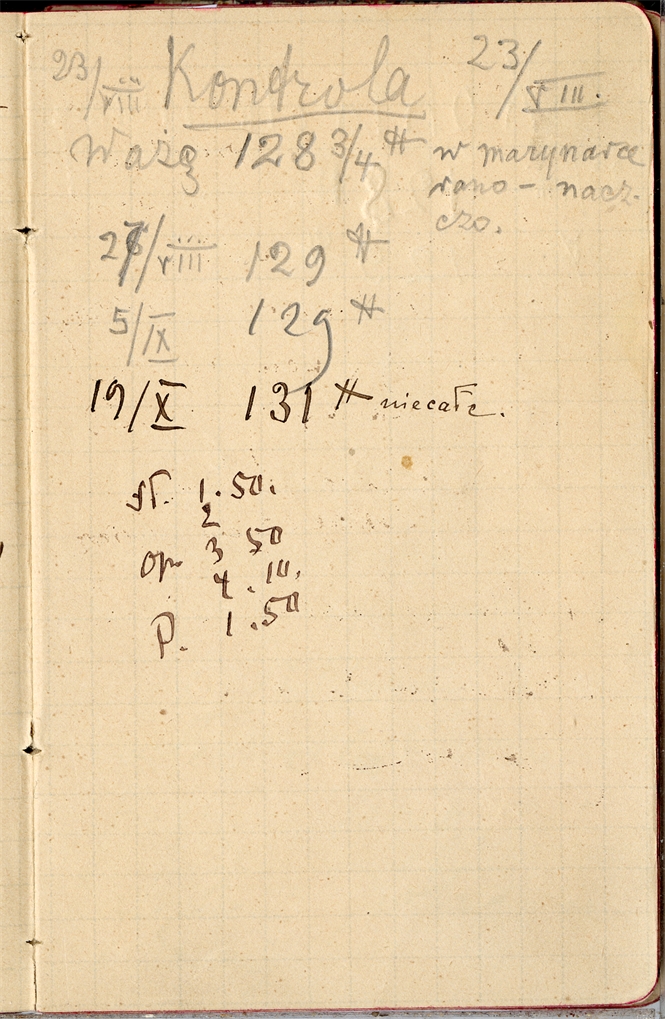 23/VIII Kontrola 23/VIII.
Ważę 128 3/4 ℔ w marynarce
rano – nacz-
czo.
27/VIII 129 ℔
5/IX 129 ℔
19/X 131 ℔ niecałe.
st. 1.50.
2
op. 3 50
4.10.
P. 1.50